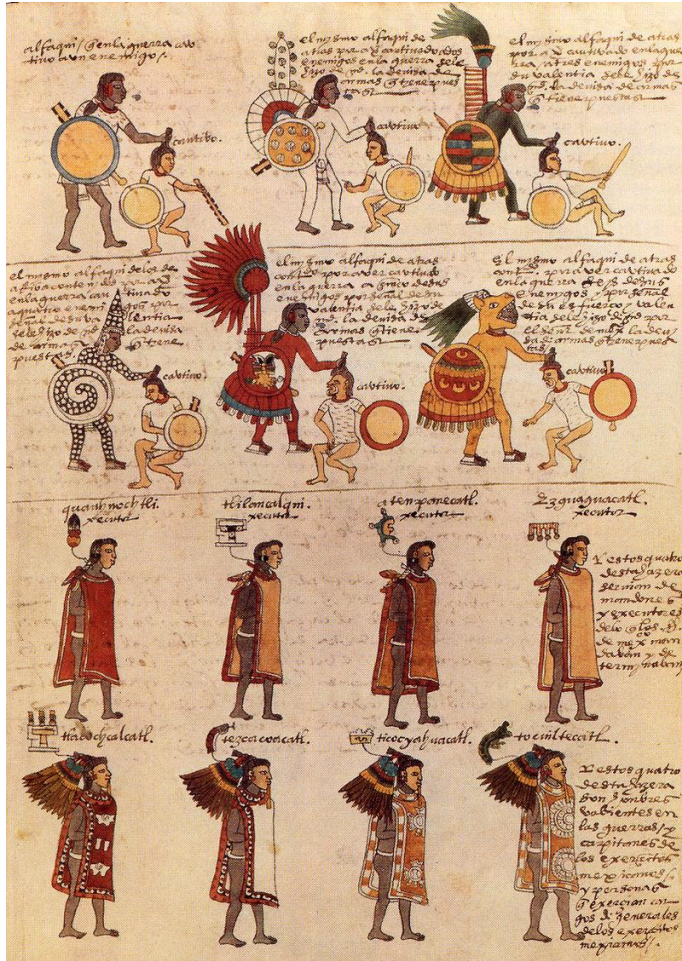 alfaqui / q̃ en la guerra cau
tivo a vn enemigo /.
cautivo.
el mismo alfaqui de
atras por a q̃ cautivado dos
enemigos en la guerra
armas q̃ tiene pues
tas
cautivo
el mismo alfaqui de atras
por a q̃ cautivado en la gue
rra / a tres enemigos por
su valentia
la devisa de armas
q̃ tiene puestas
cautivo.
el mismo alfaqui de los de
en la guerra cautivado
a quatro
la devisa
de armas q̃ tiene
puestas.
cautivo.
el mismo alfaqui de atras
por aver cautivado
en la guerra a cinco de sus
enemigos por señal de su
valentia
armas q̃ tiene
puestas
cautivo.
El mismo alfaqui de atras
por aver cautivado
en la guerra seys de sus
enemigos / por señal
de su esfuerço y valen
tia
el señor de mexico la devi
sa de armas q̃ tiene pues
tas
cautivo
quauhnochtli.
xecutor
tlilancalqui.
xecutor
atenpanecatl.
xecutor
Ezguaguacatl.
xecutor
Y estos quatro
desta hazera
servian de
mandones
y executores
de lo q̃ los s̃res
de mexico man
davan y de
terminavan
tlacochcalcatl.
tezcacoacatl.
ticocyahuacatl.
tocuiltecatl.
Y estos quatro
desta hazera
son honbres
valientes en
las guerras / y
capitanes de
los exercitos
mexicanos /
y personas
q̃ exercian car
gos de generales
de los exercitos
mexicanos /.